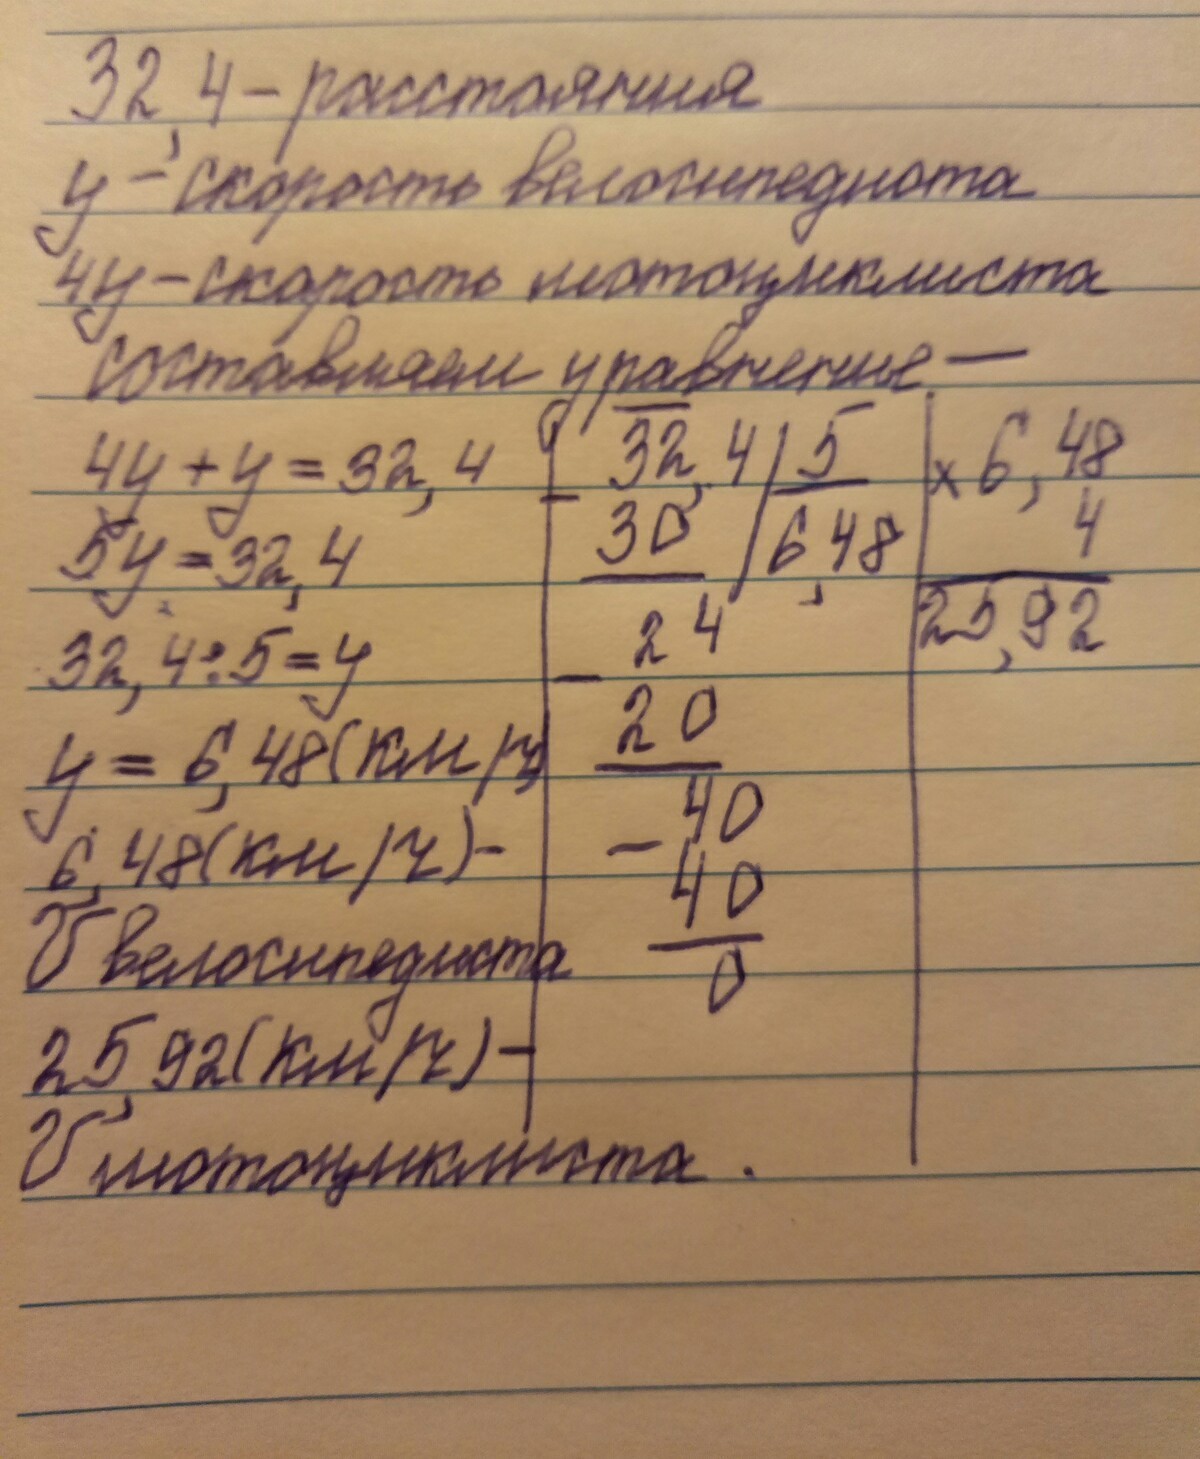 32,4 - расстояния
у - скорость велосипедиста
4у - скорость мотоциклиста
составляем уравнение —
4у + у = 32,4
5у = 32,4
32,4 : 5 = у
у = 6,48 (км/ч)
6,48 (км/ч) -
V велосипедиста
25,92 (км/ч) -
V мотоциклиста.
- 32,4 | 5
30 | 6,48
- 24
20
- 40
40
0
x 6,48
4
25,92